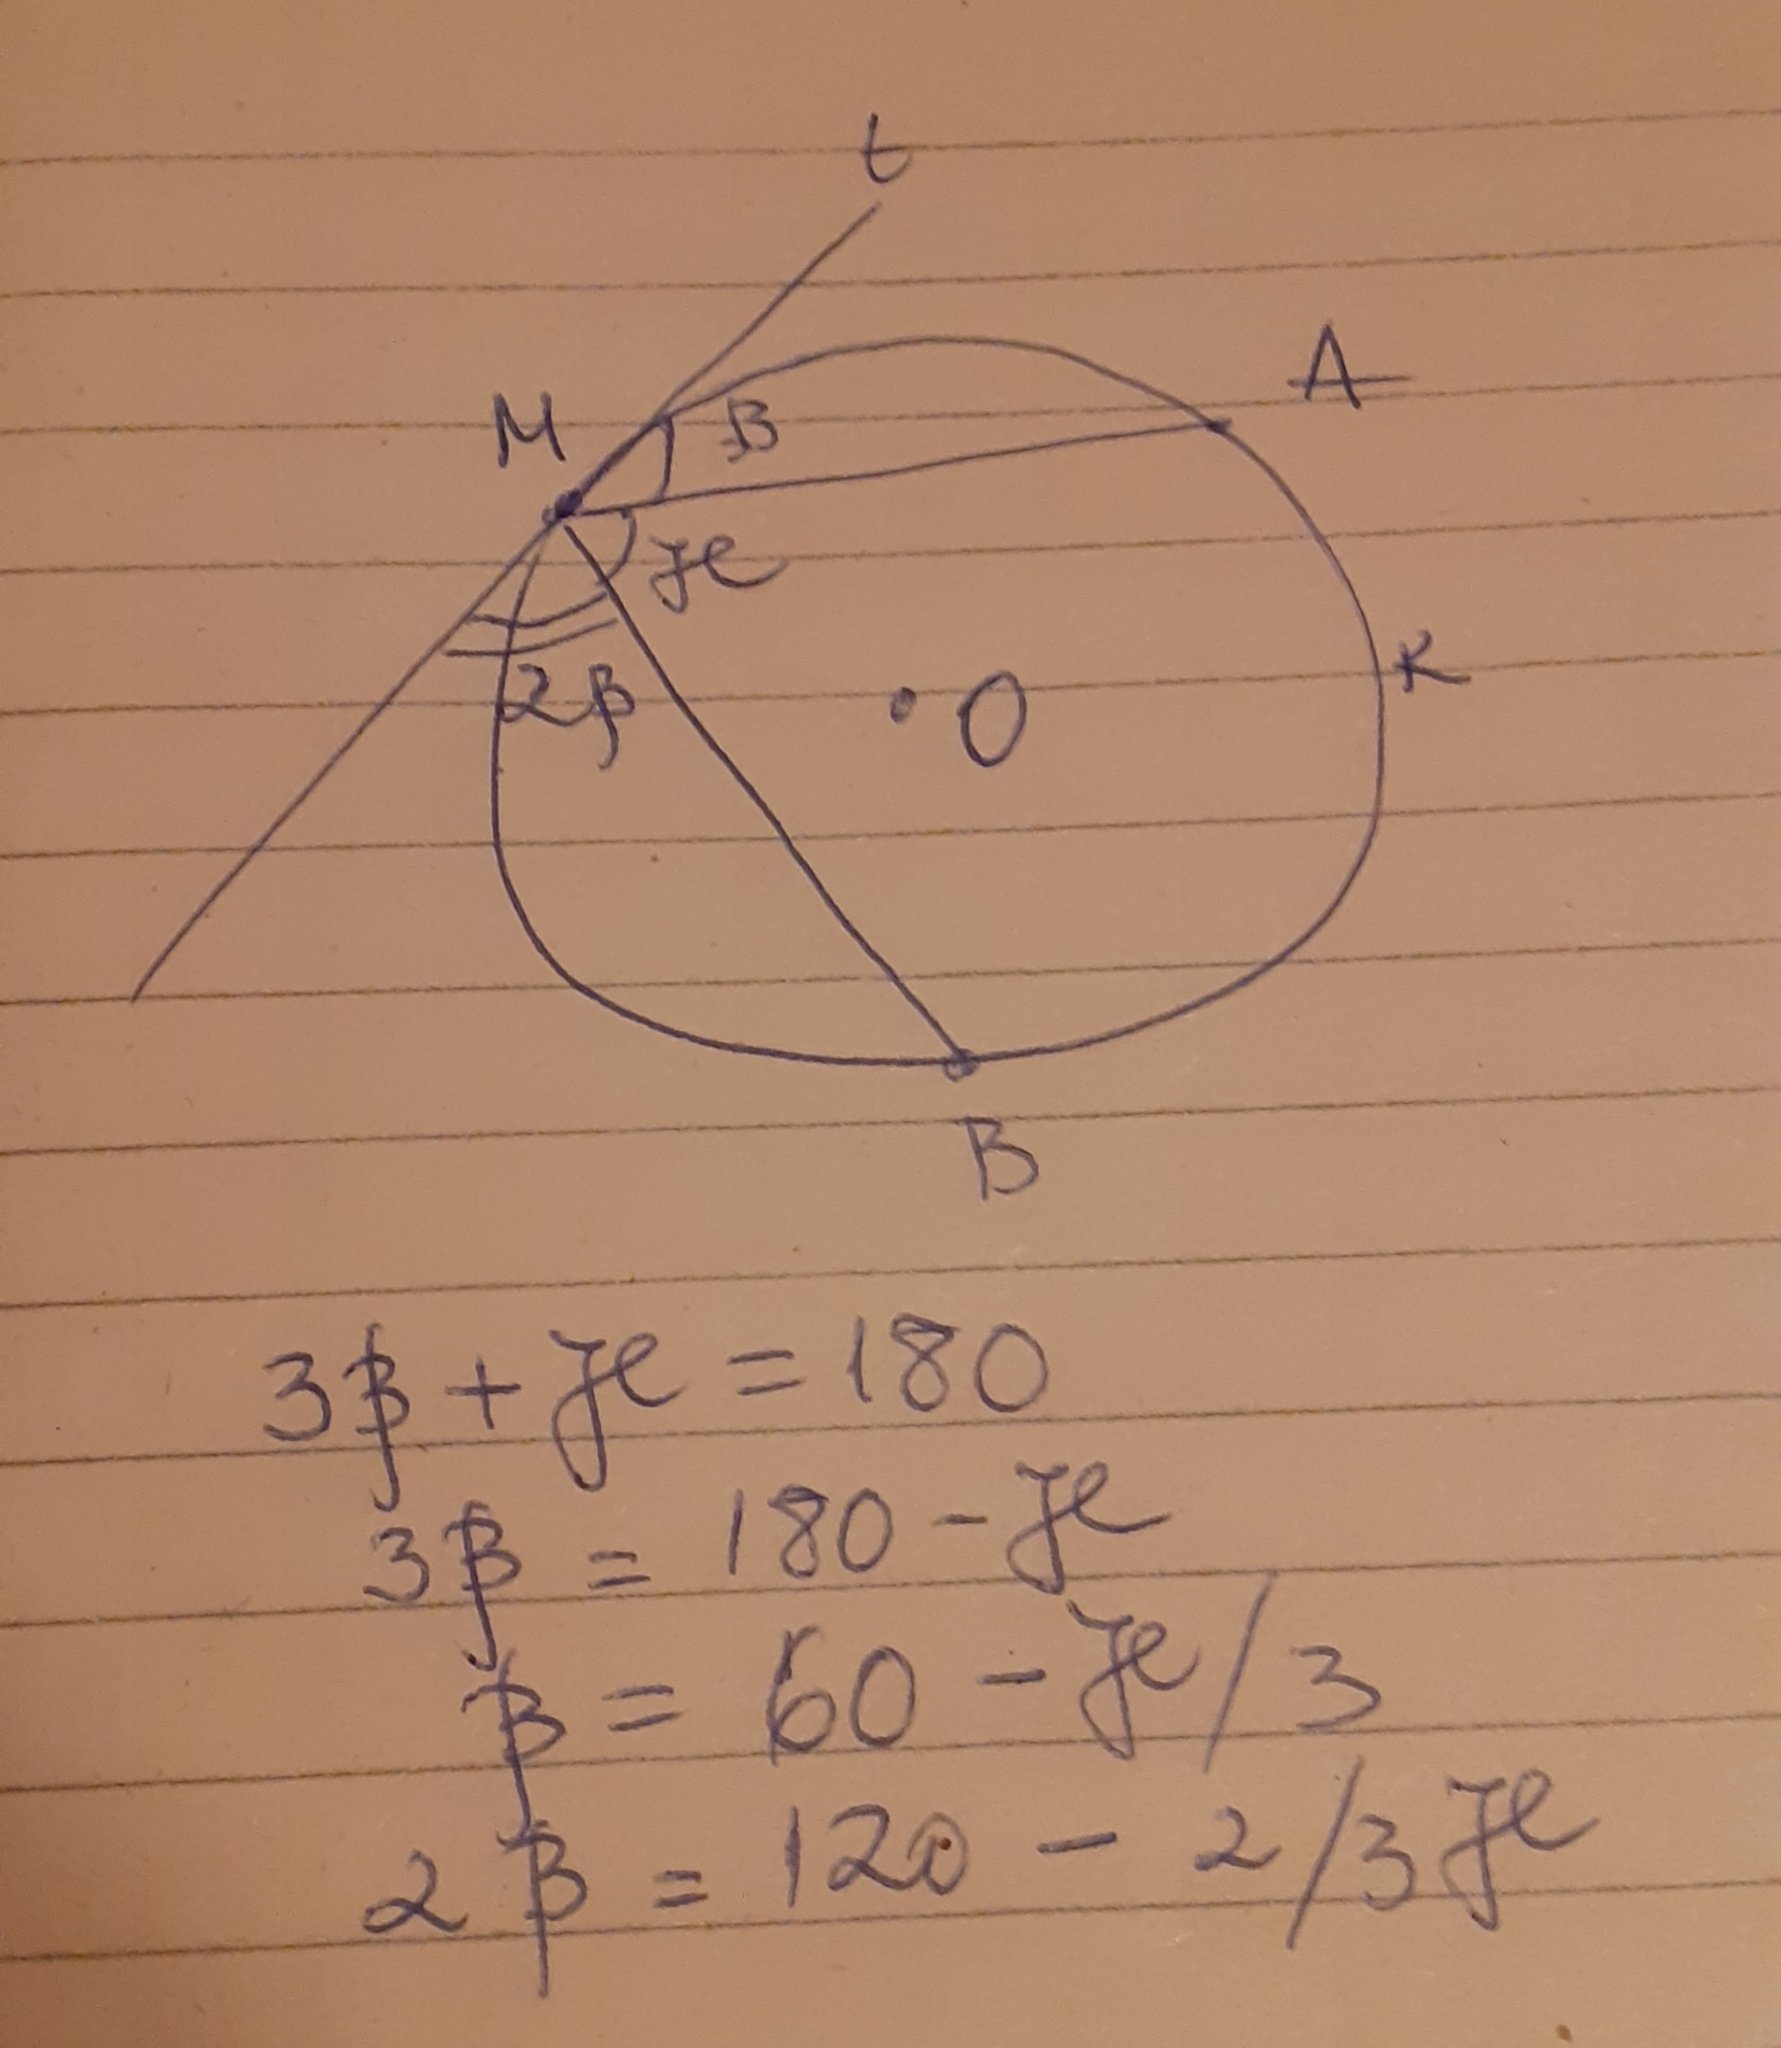 t
A
M
β
ℋ
K
2β
O
B
3β + ℋ = 180
3β = 180 - ℋ
β = 60 - ℋ/3
2β = 120 - 2/3 ℋ